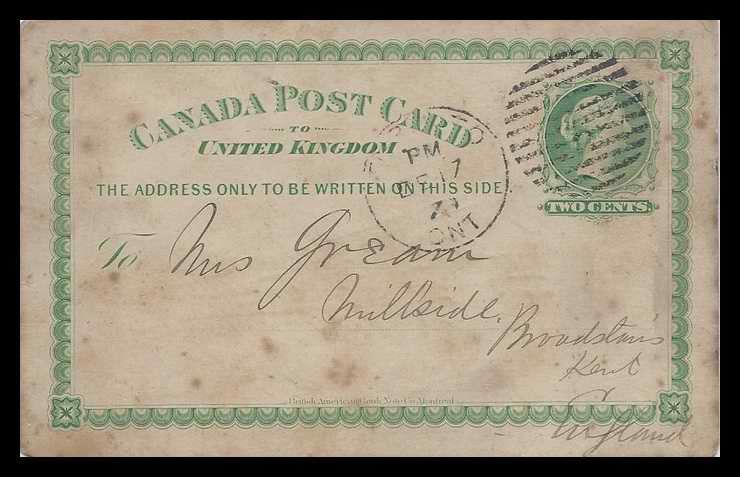 CANADA POST CARD
TO
UNITED KINGDOM
THE ADDRESS ONLY TO BE WRITTEN ON THIS SIDE
TWO CENTS
PM
DE 17
ONT
To Mrs Gream
Millside
Broadstairs
Kent
England
British American Bank Note Co. Montreal